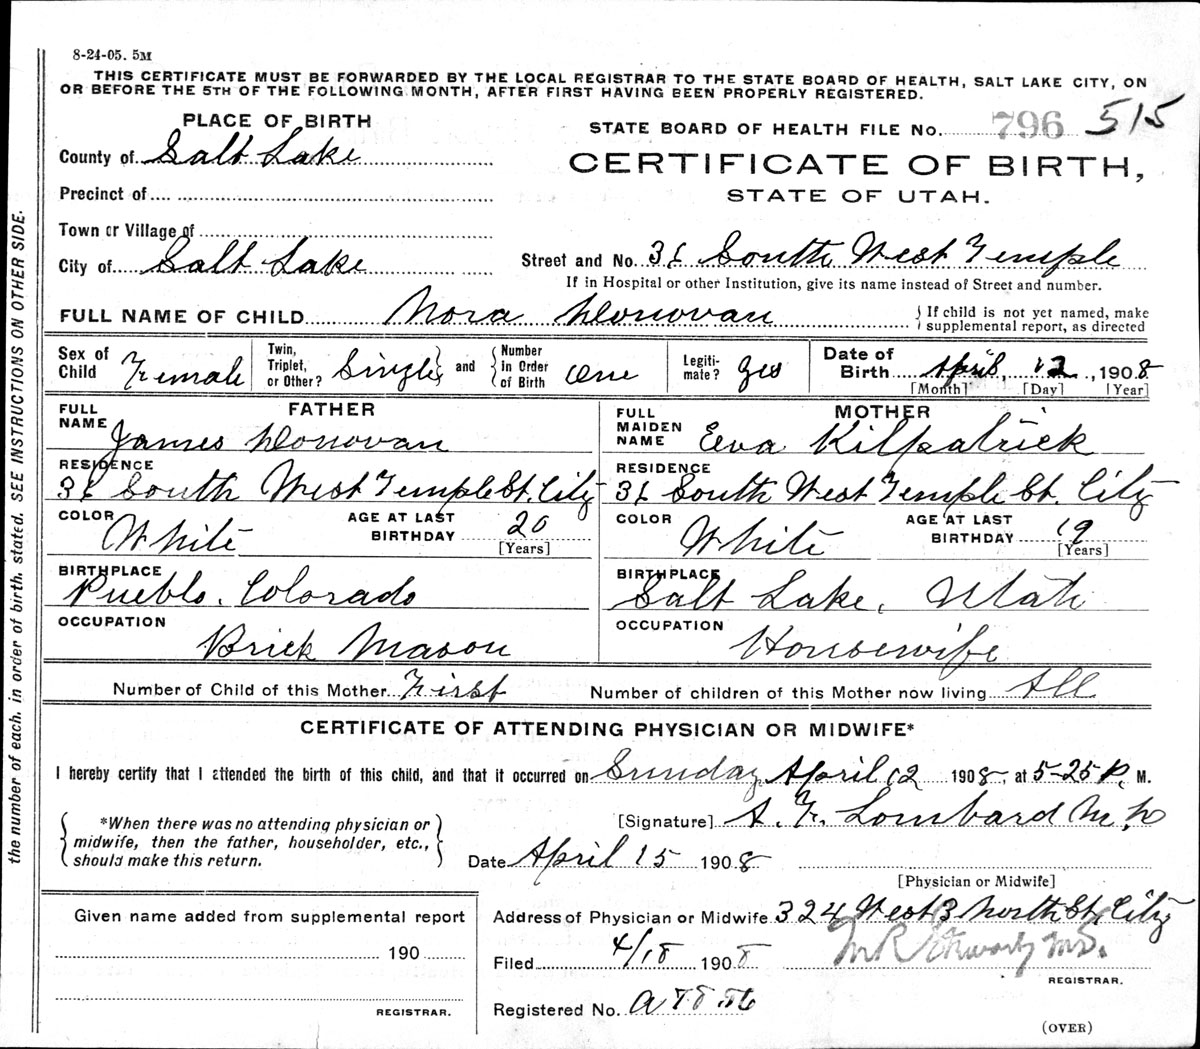 8-24-05. 5M
THIS CERTIFICATE MUST BE FORWARDED BY THE LOCAL REGISTRAR TO THE STATE BOARD OF HEALTH, SALT LAKE CITY, ON
OR BEFORE THE 5TH OF THE FOLLOWING MONTH, AFTER FIRST HAVING BEEN PROPERLY REGISTERED.
PLACE OF BIRTH
County of Salt Lake
Precinct of
Town or Village of
City of Salt Lake
STATE BOARD OF HEALTH FILE No. 796 515
CERTIFICATE OF BIRTH,
STATE OF UTAH.
Street and No. South West Temple
If in Hospital or other Institution, give its name instead of Street and number.
FULL NAME OF CHILD Nora Donovan
If child is not yet named, make
supplemental report, as directed
Sex of Child Female
Twin, Triplet, or Other? Single and Number in Order of Birth One
Legiti-mate? Yes
Date of Birth April, 12, 1908
[Month] [Day] [Year]
FATHER
FULL NAME James Donovan
RESIDENCE
South West Temple St. City
COLOR White AGE AT LAST BIRTHDAY 20
[Years]
BIRTHPLACE
Pueblo, Colorado
OCCUPATION
Brick Mason
MOTHER
FULL MAIDEN NAME Eva Kilpatrick
RESIDENCE
South West Temple St. City
COLOR White AGE AT LAST BIRTHDAY 19
[Years]
BIRTHPLACE
Salt Lake, Utah
OCCUPATION
Housewife
Number of Child of this Mother First Number of children of this Mother now living All
CERTIFICATE OF ATTENDING PHYSICIAN OR MIDWIFE*
I hereby certify that I attended the birth of this child, and that it occurred on Sunday April 12 1908, at 5-25 P. M.
*When there was no attending physician or
midwife, then the father, householder, etc.,
should make this return.
[Signature] A. F. Lombard M.D
Date April 15 1908
[Physician or Midwife]
Given name added from supplemental report
190
REGISTRAR.
Address of Physician or Midwife 324 West 3 North St. City
Filed 4/18 1908
REGISTRAR.
Registered No.
(OVER)
the number of each, in order of birth, stated. SEE INSTRUCTIONS ON OTHER SIDE.